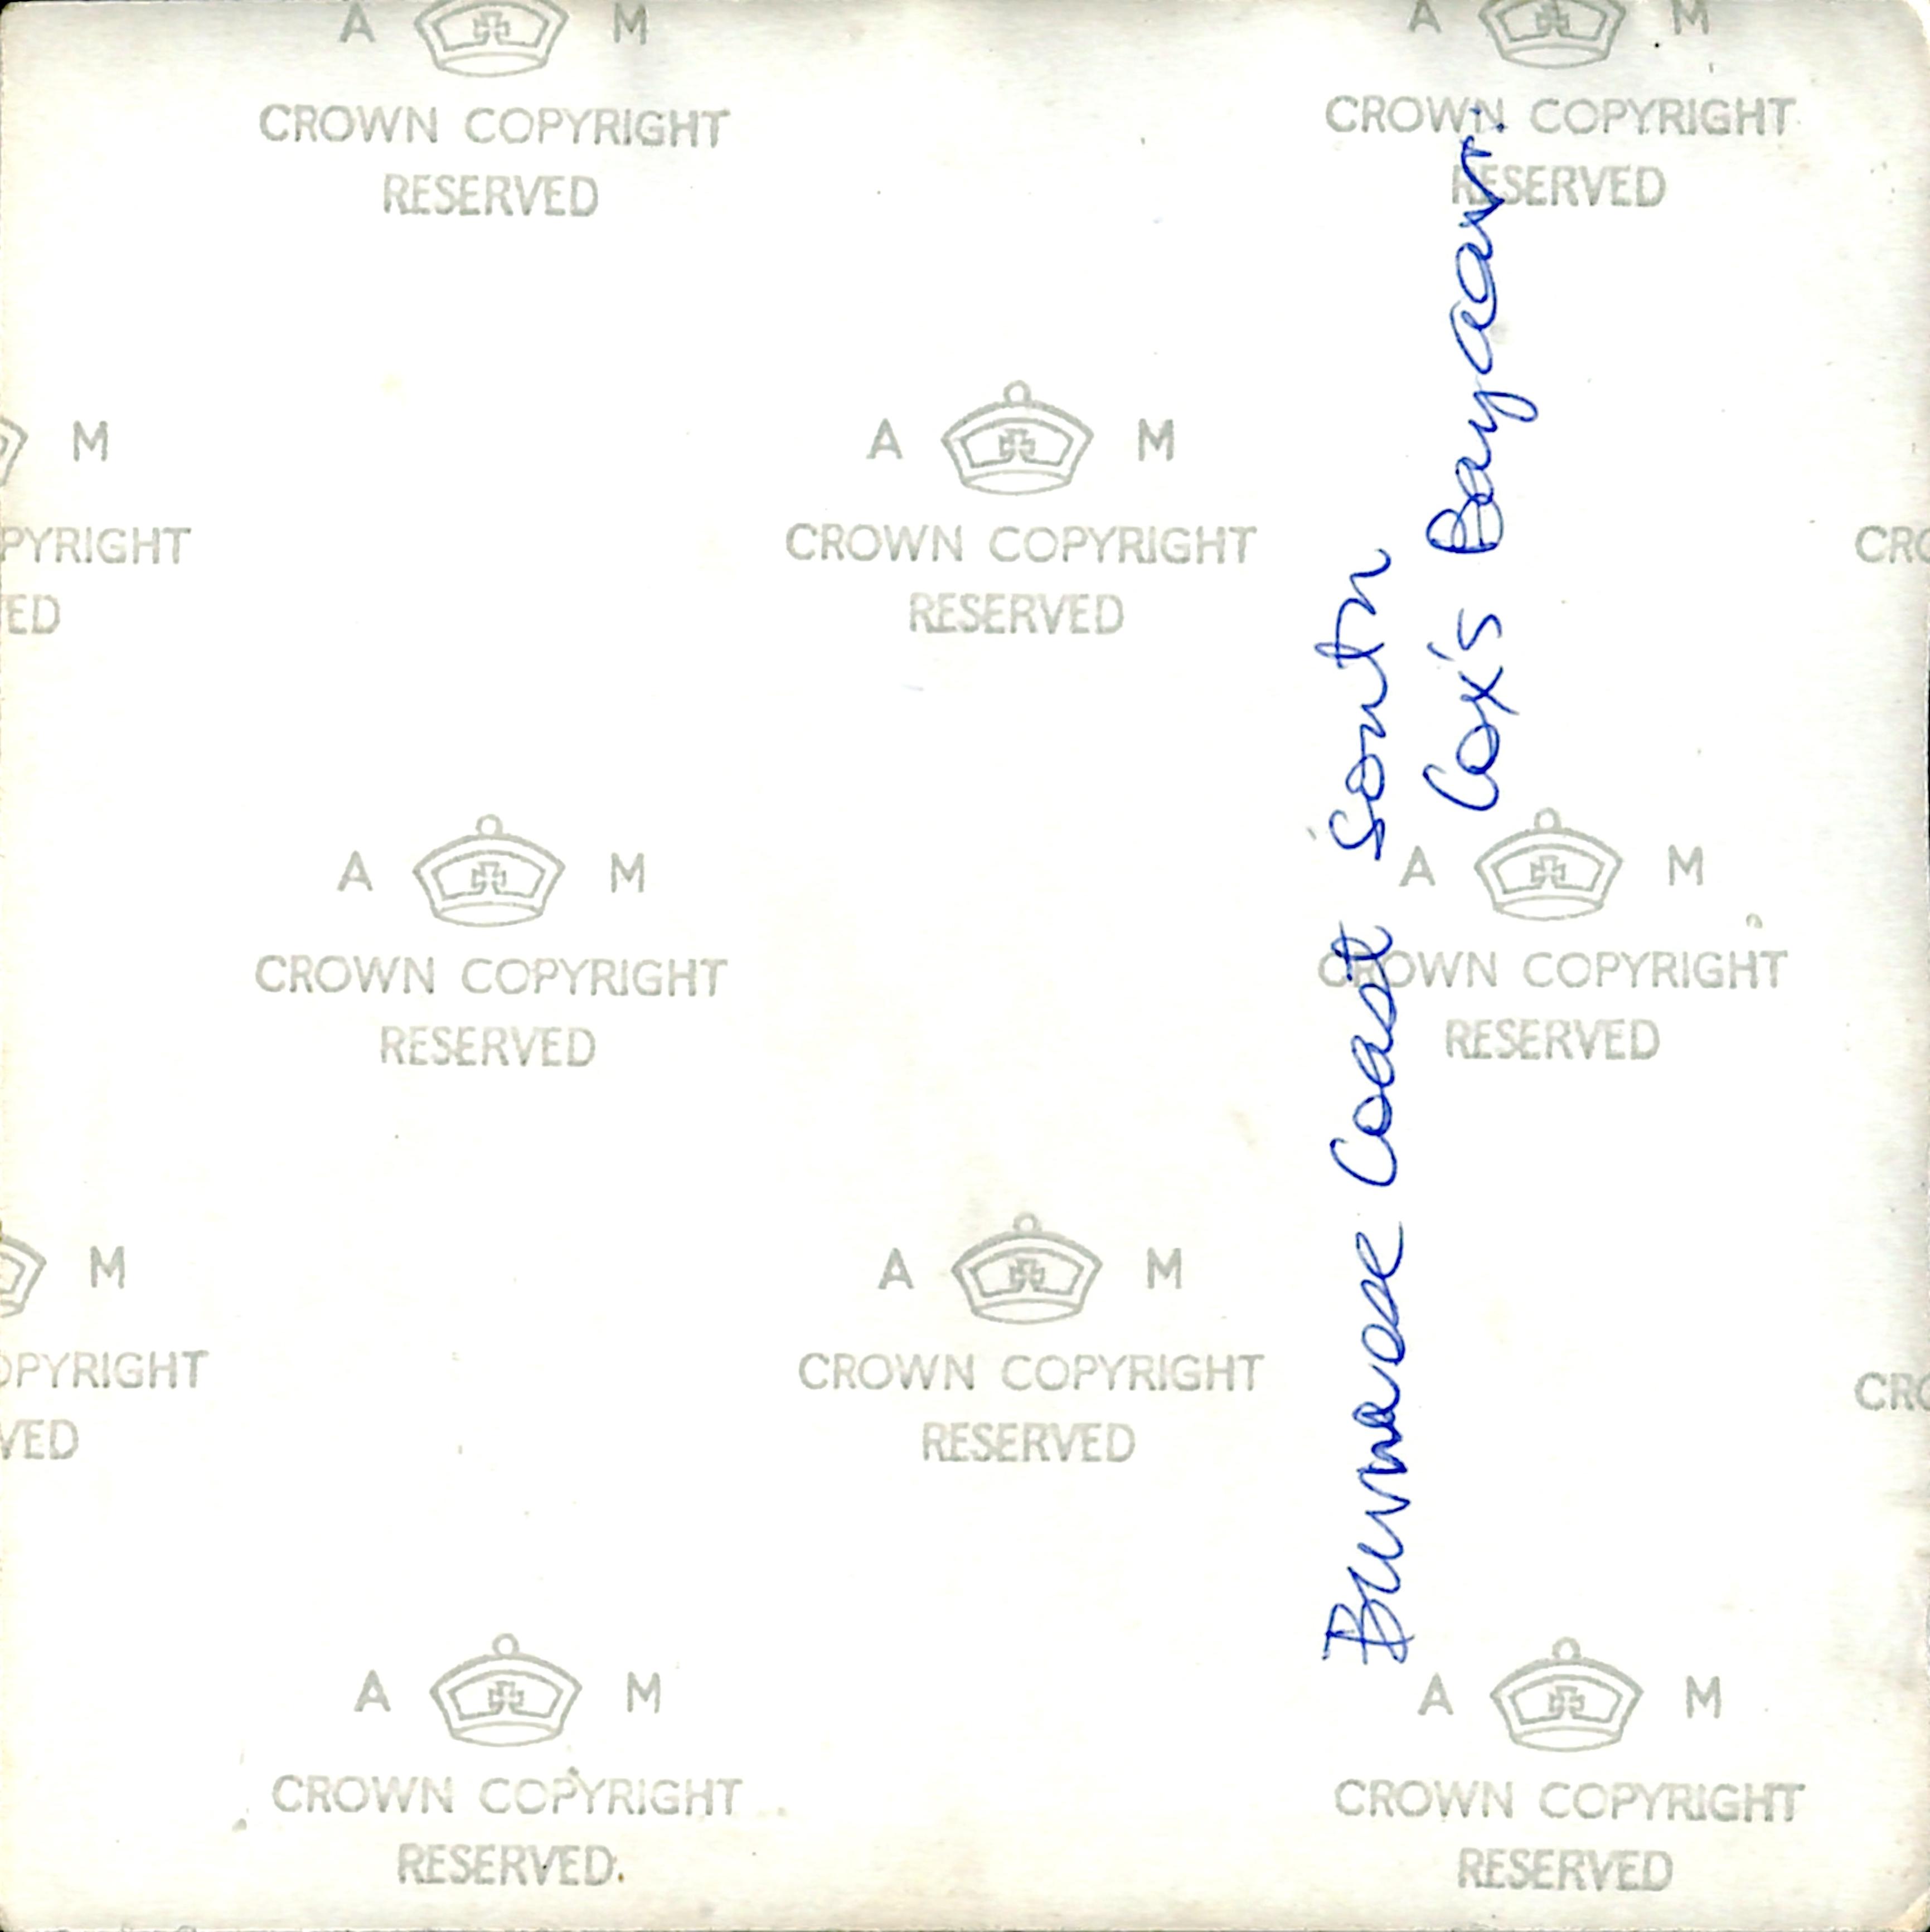 A M A M
CROWN COPYRIGHT CROWN COPYRIGHT
RESERVED RESERVED
M A M
PYRIGHT CROWN COPYRIGHT CRO
ED RESERVED
A M A M
CROWN COPYRIGHT CROWN COPYRIGHT
RESERVED RESERVED
M A M
OPYRIGHT CROWN COPYRIGHT CRO
VED RESERVED
A M A M
CROWN COPYRIGHT CROWN COPYRIGHT
RESERVED RESERVED
Burmese Coast South
Cox's